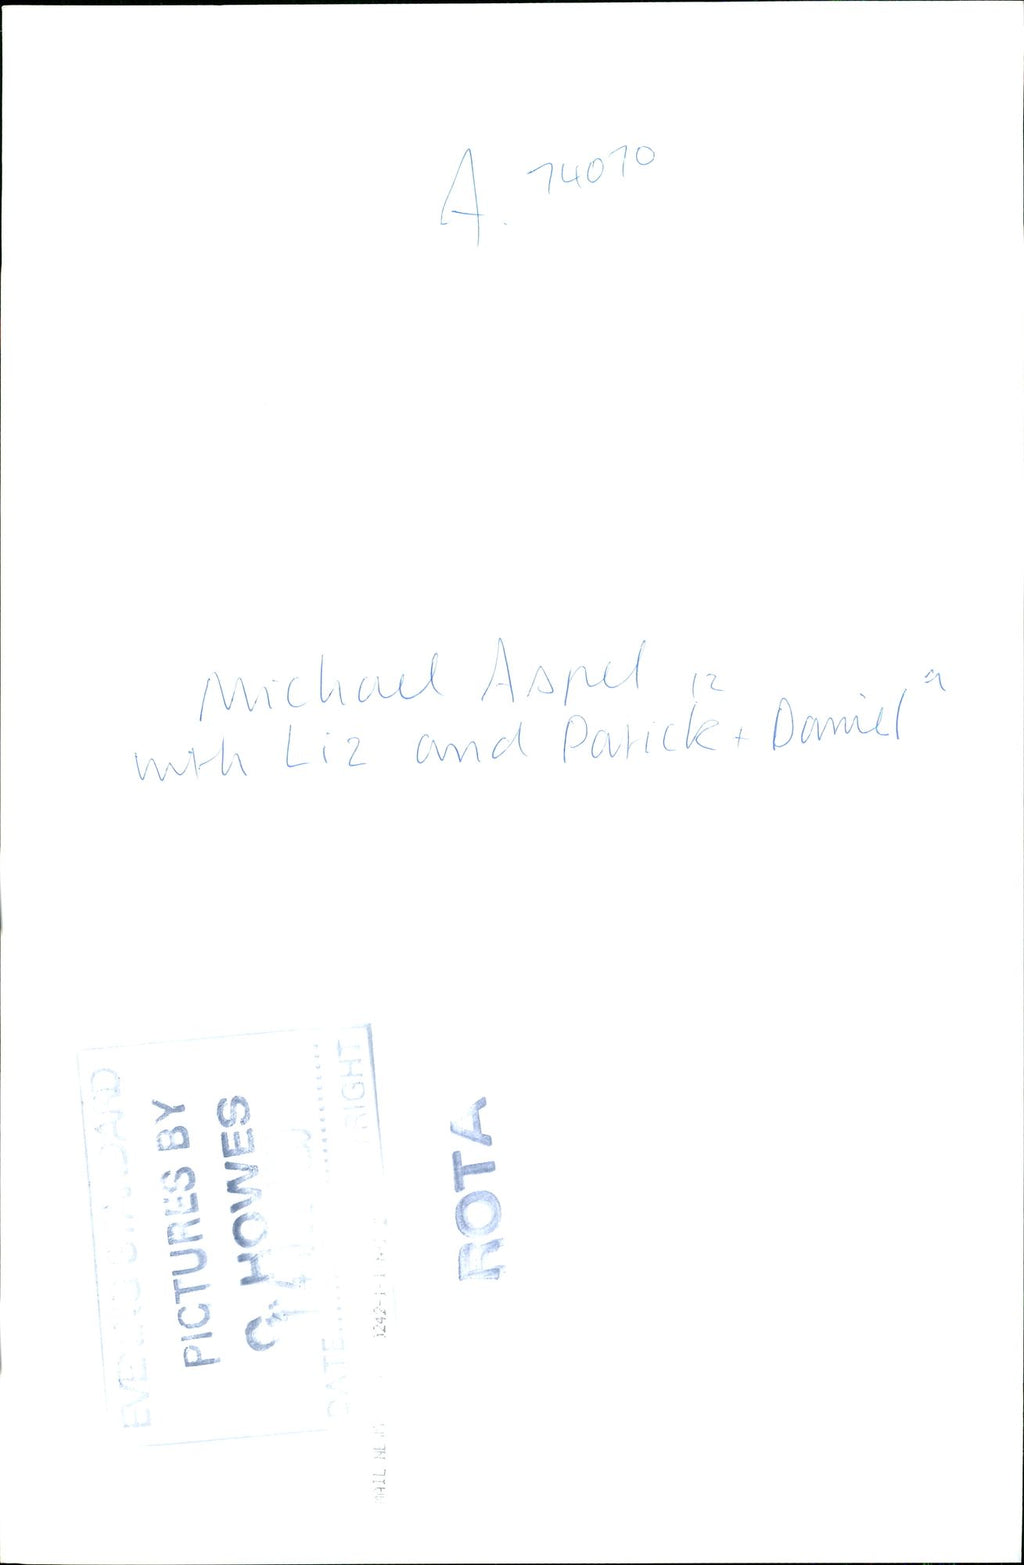 A. 74070
Michael Aspel
with Liz and Patrick 12 + Daniel 9
EVENING STANDARD
PICTURES BY
C. HOWES
DATE
RIGHT
ROTA